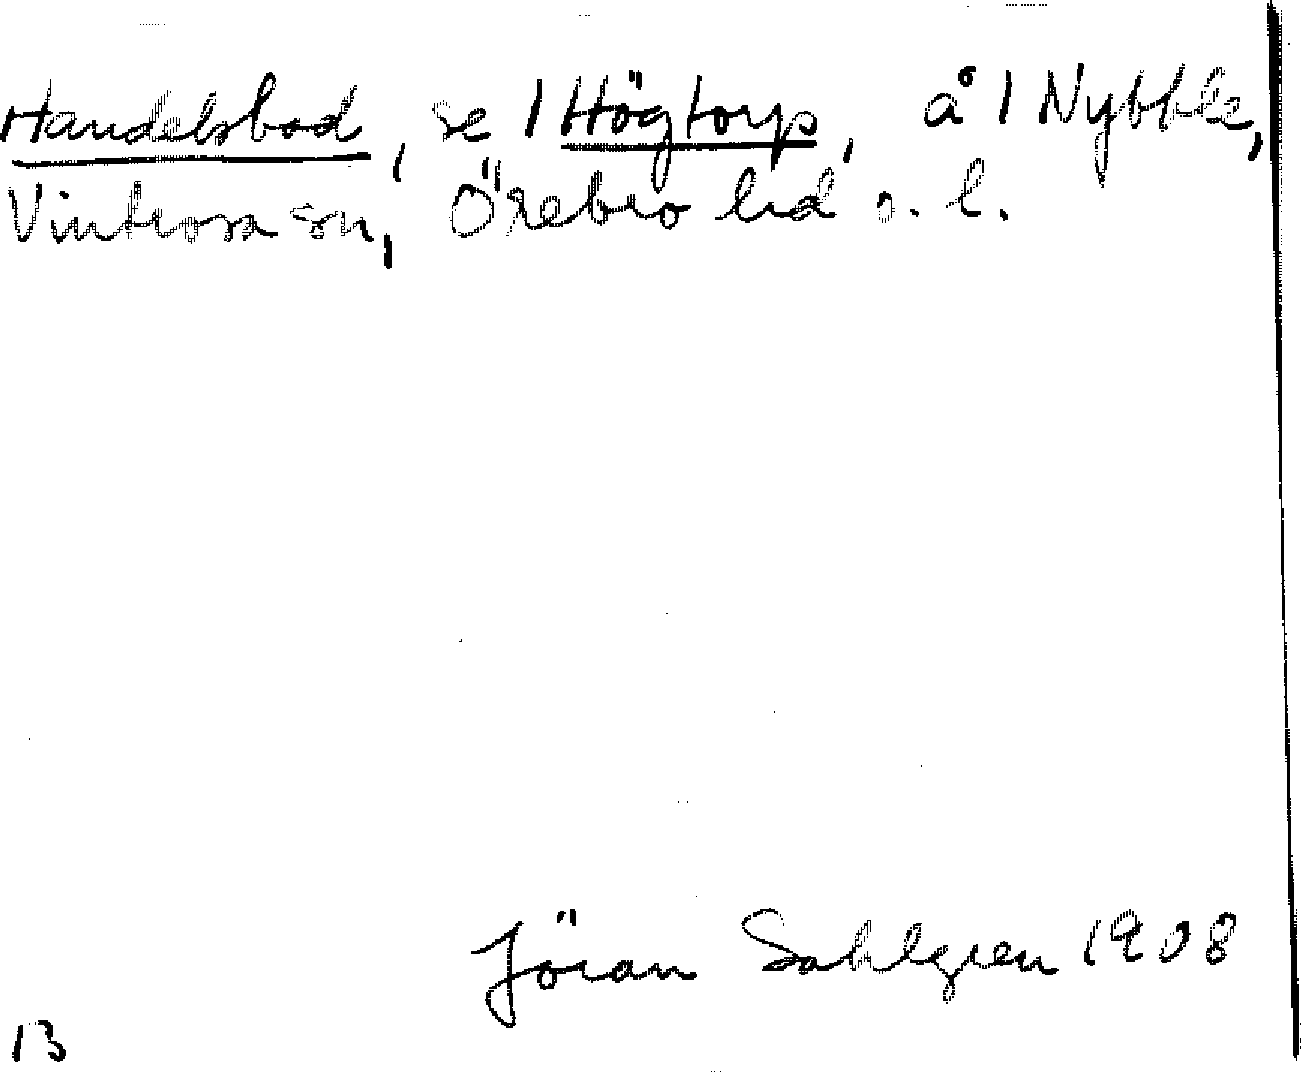 Handelsbod, se 1 Högtorp, å 1 Nybble,
Vintrosa sn, Örebro hd o. l.
Jöran Sahlgren 1908
13